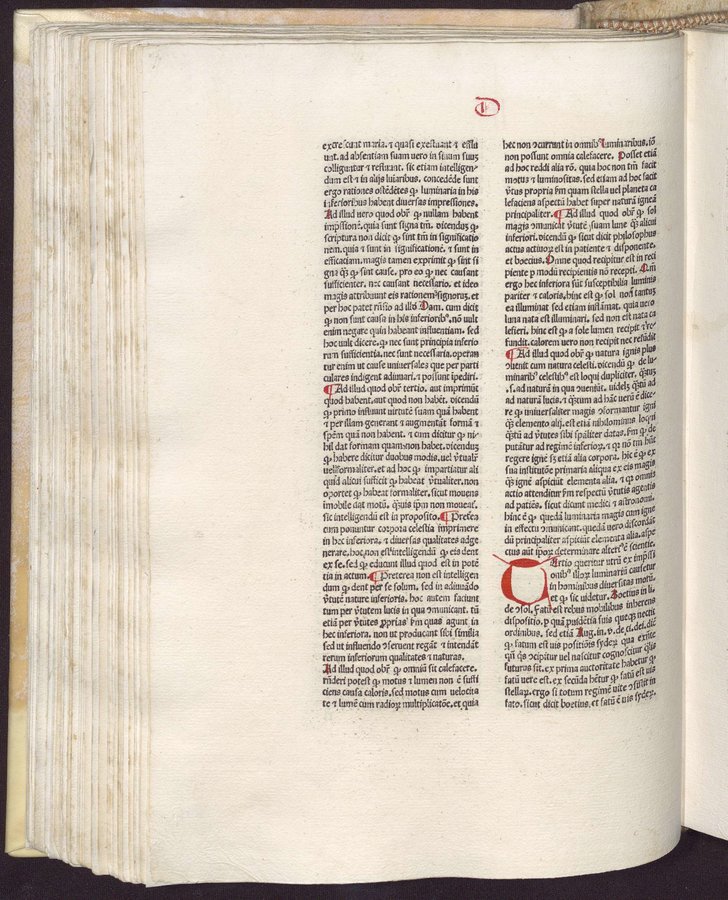 D
excrescunt maria. ⁊ quasi exestuant ⁊ efflu
unt. ad absentiam suam uero in sinum suuƺ
colliguntur ⁊ restrant. sic etiam intelligen
dum est ⁊ in alijs luaribus. concedēde sunt
ergo rationes ostēdētes ꝙ luminaria in his
inferioribus habent diuersas impressiones.
Ad illud uero quod obř ꝙ nullam habent
impssionē. quia sunt signa tm̄. dicenduƺ ꝙ
scriptura non dicit ꝙ sint tm̄ in significatio
nem. quia ⁊ sunt in significationē. ⁊ sunt in
efficaciam. magis tamen exprimit ꝙ sint si
gna ꝙ̄ ꝙ sint cause. pro eo ꝙ nec causant
sufficienter. nec causant necessario. et ideo
magis attribuunt eis rationem signoruƺ. et
per hoc patet rn̄sio ad illđ Dam. cum dicit
ꝙ non sunt causa in his inferioribꝰ. nō uult
enim negare quin habeant influentiam. sed
hoc uult dicere. ꝙ nec sunt principia inferio
rum sufficientia. nec sunt necessaria. operan
tur enim ut cause uniuersales que per parti
culares indigent adiuuari. ⁊ possunt īpediri.
¶ Ad illud quod obř tertio. aut imprimūt
quod habent. aut quod non habēt. dicendū
ꝙ primo influunt uirtutē suam quā habent
⁊ per illam generant ⁊ augmentāt formā ⁊
spēm quā non habent. ⁊ cum dicitur ꝙ ni-
hil dat formam quam non habet. dicenduƺ
ꝙ habere dicitur duobus modis. uel v̓tualr̄
uel formaliter. et ad hoc ꝙ impartiatur ali
quid alicui sufficit ꝙ habeat v̓tualiter. non
oportet ꝙ habeat formaliter. sicut mouens
imobile dat motū. ꝙ̄uis ipm̄ non moueat̄.
sic intelligendū est in proposito. ¶ Preterea
cum ponuntur corpora celestia imprimere
in hec inferiora. ⁊ diuersas qualitates adge
nerare. hoc non est intelligendū ꝙ eis dent
ex se. sed ꝙ educunt illud quod est in potē
tia in actum. ¶ Preterea non est intelligen
dum ꝙ dent per se solum. sed in adiuuādo
v̓tutē nature inferioris. hoc autem faciunt
tum per v̓tutem lucis in qua ɔmunicant. tū
etiam per v̓tutes ꝓprias fm̄ quas agunt in
hec inferiora. non ut producant sibi similia
sed ut influendo ɔseruent regāt ⁊ intendāt
rerum inferiorum qualitates ⁊ naturas.
Ad illud quod obř ꝙ omniū sit calefacere.
rn̄deri potest ꝙ motus ⁊ lumen non ē suffi
ciens causa caloris. sed motus cum uelocita
te ⁊ lumē cum radioꝝ multiplicatōe. et quia
hec non ɔcurrunt in omnibꝰ luminaribus. iō
non possunt omnia calefacere. Posset etiā
ad hoc reddi alia rō. quia hoc non tm̄ facit
motus ⁊ luminositas. sed etiam ad hoc facit
v̓tus propria fm̄ quam stella uel planeta ca
lefaciens aspectū habet super naturā igneā
principaliter. ¶ Ad illud quod obř ꝙ sol
magis ɔmunicat v̓tutē suam lune ꝙ̄ alicui
inferiori. dicendū ꝙ sicut dicit philosophus
actus actiuoꝝ est in patiente ⁊ disponente.
et boecius. Omne quod recipitur est in reci
piente p modū recipientis nō recepti. Qm̄
ergo hec inferiora sūt susceptibilia luminis
pariter ⁊ caloris. hinc est ꝙ sol non tantuƺ
ea illuminat. sed etiam inflāmat. quia uero
luna nata est illuminari. sed non est nata ca
lefieri. hinc est ꝙ a sole lumen recipit ⁊ re-
fundit. calorem uero non recipit nec refūdit
¶ Ad illud quod obř ꝙ natura ignis plus
ɔuenit cum natura celesti. dicendū ꝙ de lu-
minaribꝰ celestibꝰ est loqui dupliciter. ꝙ̄tuƺ
.s. ad naturā in qua ɔueniūt. uideƺ ꝙ̄tū ad
ad naturā lucis. ⁊ ꝙ̄tum ad hāc uerū ē dice-
re ꝙ uniuersaliter magis ɔformantur igni
ꝙ̄ elemento alij. est etiā nihilominus loqui
ꝙ̄tū ad v̓tutes sibi sp̄aliter datas. fm̄ ꝙ de
putātur ad regimē inferioꝝ. ⁊ quia nō tm̄ hn̄t
regere ignē sƺ etiā alia corpora. hic ē ꝙ ex
sua institutōe primaria aliqua ex eis magis
ꝙ̄ ignē aspiciūt elementa alia. ⁊ ꝙ omnis
actio attenditur fm̄ respectū v̓tutis agentis
ad patiēs. sicut dicunt medici ⁊ astronomi.
hinc ē ꝙ quedā luminaria magis cum igne
in effectu ɔmunicant. quedā uero discordāt
dū principaliter aspiciūt elementa alia. aspe
ctus aūt ipoꝝ determinare alteriꝰ ē scientie.
Tertio queritur utrū ex impssi
onibꝰ illoꝝ luminariū causetur
in hominibus diuersitas morū.
et ꝙ sic uidetur. Boetius in li.
de ɔsol. Fatū est rebus mobilibus inherens
dispositio. p quā ꝓuidētia suis queqƺ nectit
ordinibus. sed etiā Aug. in .v. de ci. dei. dic̄
ꝙ fatum est uis positiōis syderū qua existe
qn̄ ꝙ̄s ɔcipitur uel nascitur cognoscitur qꝰ̄
futurus sit. ex prima auctoritate habetur ꝙ
fatū uere est. ex secūda hētur ꝙ fatū est uis
stellaꝝ. ergo si totum regimē uite ɔsistit in
fato. sicut dicit boetius. et fatū ē uis syderꝝ.